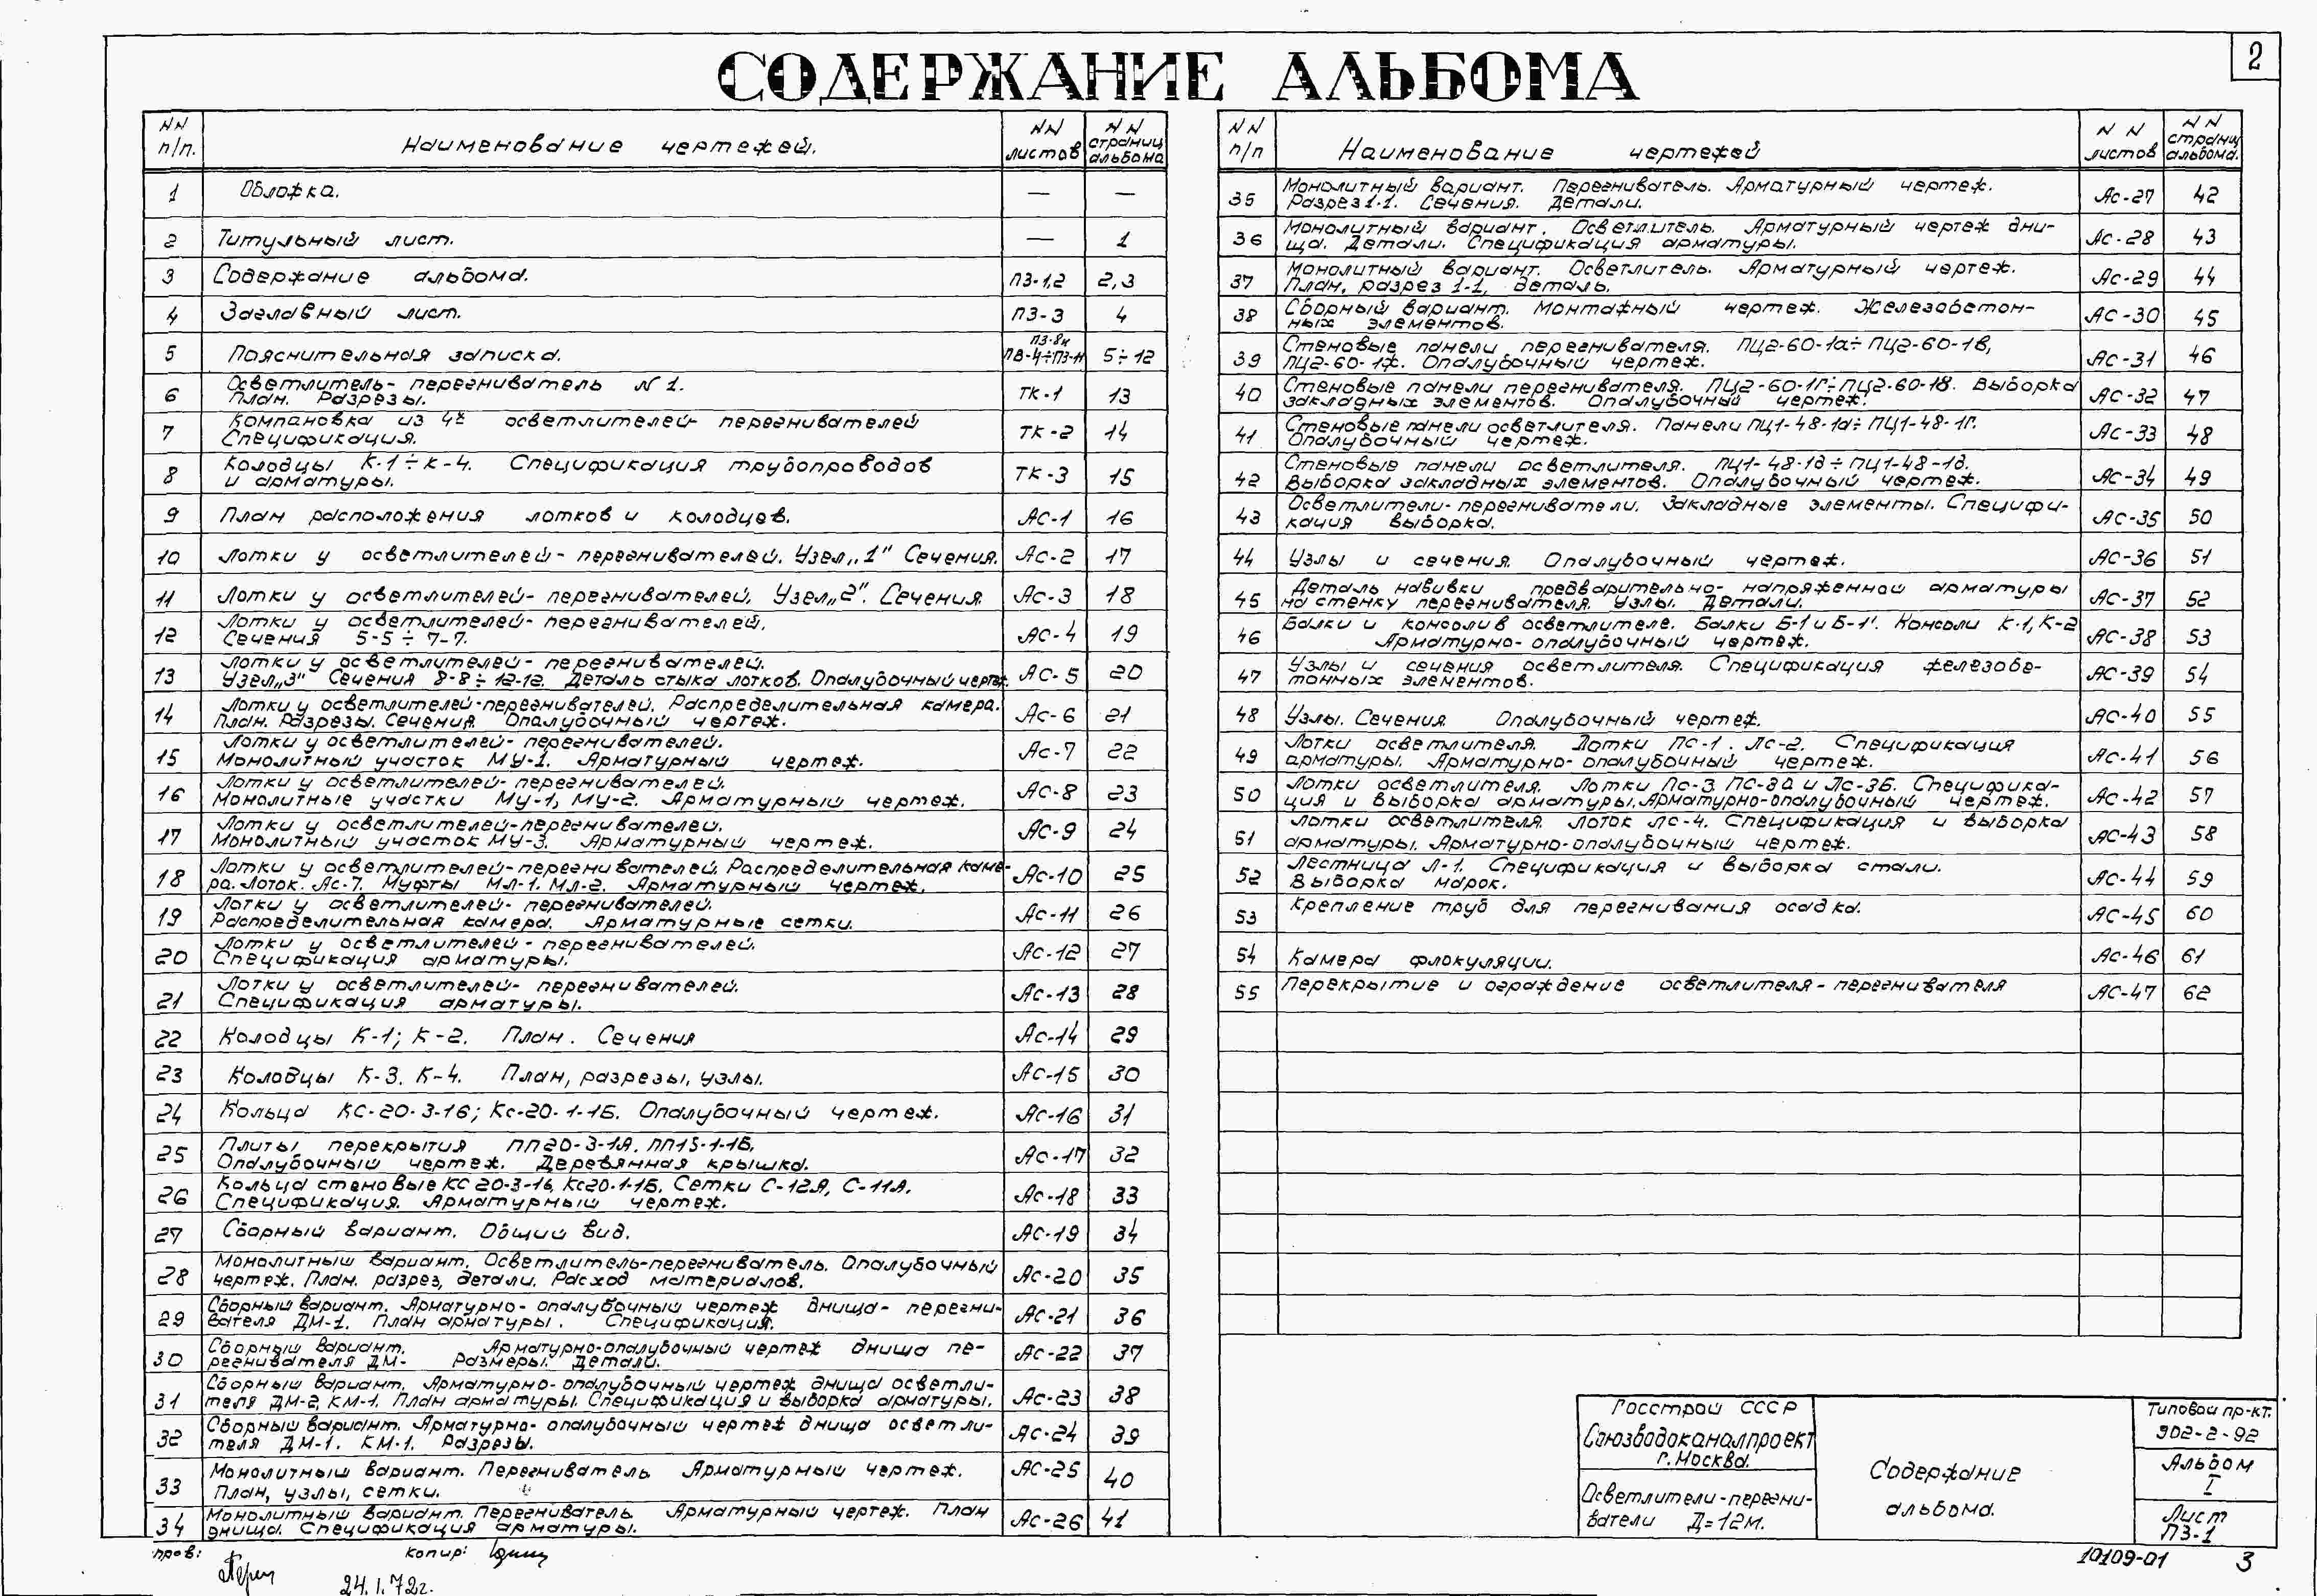 2
СОДЕРЖАНИЕ АЛЬБОМА
NN п/п. Наименование чертежей. NN листов NN страниц альбома
1 Обложка. — —
2 Титульный лист. — 1
3 Содержание альбома. ПЗ-1,2 2,3
4 Заглавный лист. ПЗ-3 4
5 Пояснительная записка. ПЗ-4÷ПЗ-11 5÷12
6 Осветлитель-перегниватель N 1.
План. Разрезы. ТК-1 13
7 Компановка из 4х осветлителей-перегнивателей
Спецификация. ТК-2 14
8 Колодцы К-1÷К-4. Спецификация трубопроводов
и арматуры. ТК-3 15
9 План расположения лотков и колодцев. АС-1 16
10 Лотки у осветлителей-перегнивателей. Узел „1" Сечения. АС-2 17
11 Лотки у осветлителей-перегнивателей. Узел „2". Сечения. АС-3 18
12 Лотки у осветлителей-перегнивателей.
Сечения 5-5÷7-7. АС-4 19
13 Лотки у осветлителей-перегнивателей.
Узел „3" Сечения 8-8÷12-12. Деталь стыка лотков. Опалубочный чертеж. АС-5 20
14 Лотки у осветлителей-перегнивателей. Распределительная камера.
План. Разрезы. Сечения. Опалубочный чертеж. АС-6 21
15 Лотки у осветлителей-перегнивателей.
Монолитный участок МУ-1. Арматурный чертеж. АС-7 22
16 Лотки у осветлителей-перегнивателей.
Монолитные участки МУ-1, МУ-2. Арматурный чертеж. АС-8 23
17 Лотки у осветлителей-перегнивателей.
Монолитный участок МУ-3. Арматурный чертеж. АС-9 24
18 Лотки у осветлителей-перегнивателей. Распределительная каме-
ра. Лоток. Ас-7. Муфты МЛ-1. МЛ-2. Арматурный чертеж. АС-10 25
19 Лотки у осветлителей-перегнивателей.
Распределительная камера. Арматурные сетки. АС-11 26
20 Лотки у осветлителей-перегнивателей.
Спецификация арматуры. АС-12 27
21 Лотки у осветлителей-перегнивателей.
Спецификация арматуры. АС-13 28
22 Колодцы К-1; К-2. План. Сечения АС-14 29
23 Колодцы К-3. К-4. План, разрезы, узлы. АС-15 30
24 Кольца КС-20-3-16; КС-20-1-1Б. Опалубочный чертеж. АС-16 31
25 Плиты перекрытия ПП20-3-1А. ПП15-1-1Б.
Опалубочный чертеж. Деревянная крышка. АС-17 32
26 Кольца стеновые КС 20-3-16, КС20-1-1Б. Сетки С-12А, С-11А.
Спецификация. Арматурный чертеж. АС-18 33
27 Сборный вариант. Общий вид. АС-19 34
28 Монолитный вариант. Осветлитель-перегниватель. Опалубочный
чертеж. План. разрез, детали. Расход материалов. АС-20 35
29 Сборный вариант. Арматурно-опалубочный чертеж днища-перегни-
вателя ДМ-1. План арматуры. Спецификация. АС-21 36
30 Сборный вариант. Арматурно-опалубочный чертеж днища пе-
регнивателя ДМ- Размеры. Детали. АС-22 37
31 Сборный вариант. Арматурно-опалубочный чертеж днища осветли-
теля ДМ-2, КМ-1. План арматуры. Спецификация и выборка арматуры. АС-23 38
32 Сборный вариант. Арматурно-опалубочный чертеж днища осветли-
теля ДМ-1. КМ-1. Разрезы. АС-24 39
33 Монолитный вариант. Перегниватель Арматурный чертеж.
План, узлы, сетки. АС-25 40
34 Монолитный вариант. Перегниватель. Арматурный чертеж. План
днища. Спецификация арматуры. АС-26 41
NN п/п Наименование чертежей NN листов NN страниц альбома.
35 Монолитный вариант. Перегниватель. Арматурный чертеж.
Разрез 1-1. Сечения. Детали. АС-27 42
36 Монолитный вариант. Осветлитель. Арматурный чертеж дни-
ща. Детали. Спецификация арматуры. АС-28 43
37 Монолитный вариант. Осветлитель. Арматурный чертеж.
План, разрез 1-1, деталь. АС-29 44
38 Сборный вариант. Монтажный чертеж. Железобетон-
ных элементов. АС-30 45
39 Стеновые панели перегнивателя. ПЦ2-60-1а÷ПЦ2-60-1в,
ПЦ2-60-1ж. Опалубочный чертеж. АС-31 46
40 Стеновые панели перегнивателя. ПЦ2-60-1г÷ПЦ2-60-18. Выборка
закладных элементов. Опалубочный чертеж. АС-32 47
41 Стеновые панели осветлителя. Панели ПЦ1-48-1а÷ПЦ1-48-1г.
Опалубочный чертеж. АС-33 48
42 Стеновые панели осветлителя. ПЦ1-48-1д÷ПЦ1-48-1д.
Выборка закладных элементов. Опалубочный чертеж. АС-34 49
43 Осветлители-перегниватели. Закладные элементы. Специфи-
кация выборка. АС-35 50
44 Узлы и сечения. Опалубочный чертеж. АС-36 51
45 Деталь навивки предварительно-напряженной арматуры
на стенку перегнивателя. Узлы. Детали. АС-37 52
46 Балки и консоли в осветлителе. Балки Б-1 и Б-1'. Консоли К-1, К-2
Арматурно-опалубочный чертеж. АС-38 53
47 Узлы и сечения осветлителя. Спецификация железобе-
тонных элементов. АС-39 54
48 Узлы. Сечения. Опалубочный чертеж. АС-40 55
49 Лотки осветлителя. Лотки ЛС-1. ЛС-2. Спецификация
арматуры. Арматурно-опалубочный чертеж. АС-41 56
50 Лотки осветлителя. Лотки ЛС-3. ЛС-3а и ЛС-3б. Специфика-
ция и выборка арматуры. Арматурно-опалубочный чертеж. АС-42 57
51 Лотки осветлителя. Лоток ЛС-4. Спецификация и выборка
арматуры. Арматурно-опалубочный чертеж. АС-43 58
52 Лестница Л-1. Спецификация и выборка стали.
Выборка марок. АС-44 59
53 Крепление труб для перегнивания осадка. АС-45 60
54 Камера флокуляции. АС-46 61
55 Перекрытие и ограждение осветлителя-перегнивателя АС-47 62
Госстрой СССР
Союзводоканалпроект
г. Москва.
Осветлители-перегни-
ватели Д=12м.
Содержание
альбома.
Типовой пр-кт.
902-2-92
Альбом
I
Лист
ПЗ-1
пров: копир:
24.1.72г.
10109-01 3